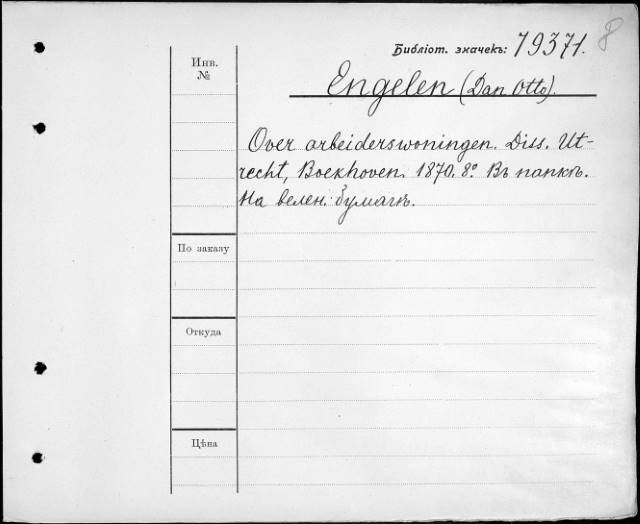 8
Библіот. значекъ: 79371.
Инв.
№
Engelen (Dan Otto).
Over arbeiderswoningen. Diss. Ut-
recht, Boekhoven. 1870. 8º. Въ папкѣ.
На велен. бумагѣ.
По заказу
Откуда
Цѣна